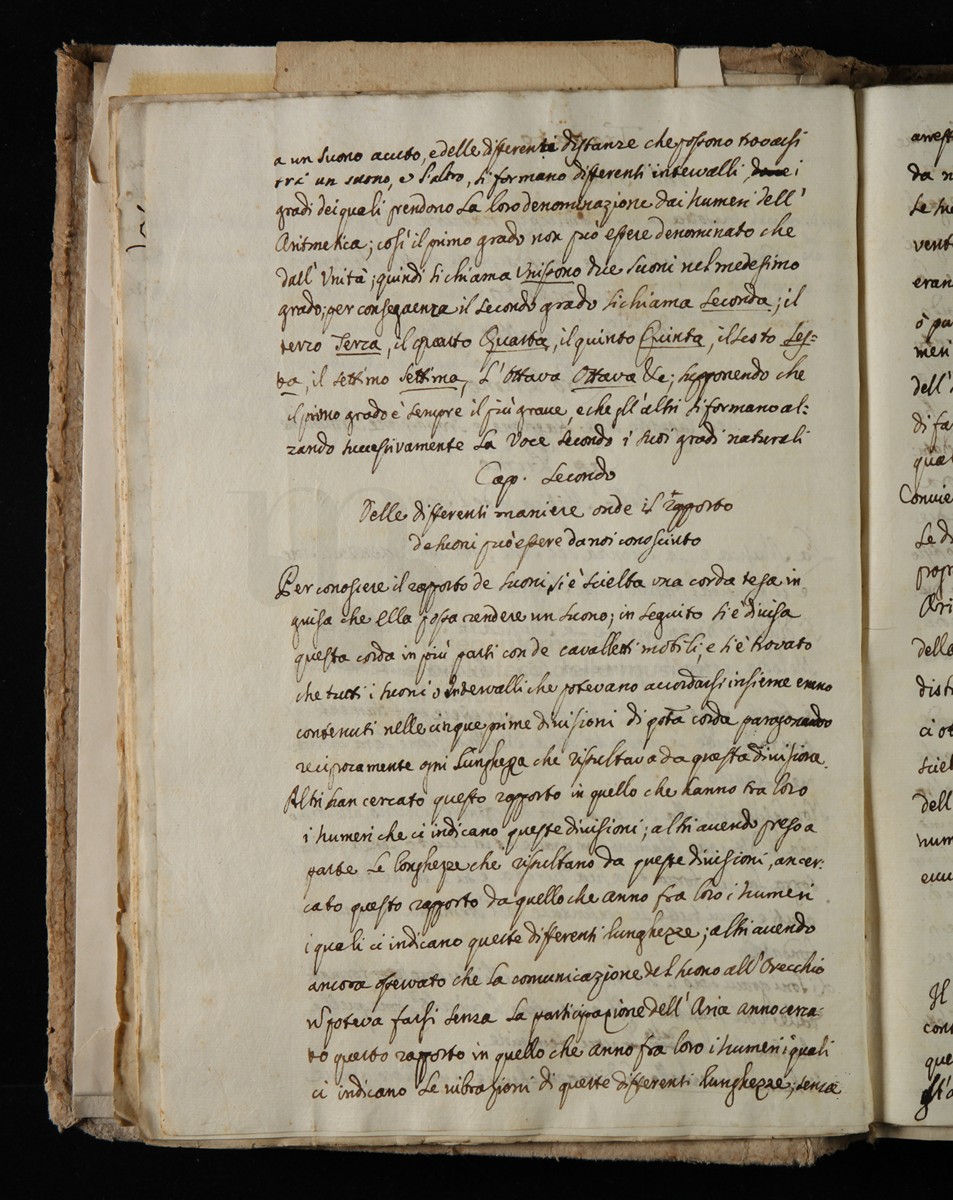 a un Suono acuto, e delle differenti distanze che possono trovarsi
trà un suono, e l'altro, si formano differenti intervalli i
gradi dei quali prendono la loro denominazione dai Numeri dell'
Aritmetica; così il primo grado non può essere denominato che
dall' Unità; quindi si chiama Unissono due Suoni nel medesimo
grado; per conseguenza il Secondo grado si chiama Seconda; il
terzo Terza, il quarto Quarta, il quinto Quinta, il Sesto Ses:
ta, il settimo Settima, l'ottava Ottava &c; supponendo che
il primo grado è sempre il più grave, e che gl'altri si formano al:
zando successivamente la Voce Secondo i suoi gradi naturali
Cap. Secondo
Delle differenti maniere onde il rapporto
de Suoni può essere da noi conosciuto
Per conoscere il rapporto de Suoni, si è scielta una corda tesa in
guisa che ella possa rendere un Suono; in seguito si è divisa
questa corda in più parti con de cavalletti mobili, e si è trovato
che tutti i Suoni o Intervalli che potevano accordarsi insieme erano
contenuti nelle cinque prime divisioni di qsta corda paragonando
reciprocamente ogni Lunghezza che risultava da questa divisione.
Altri han cercato questo rapporto in quello che hanno tra loro
i Numeri che ci indicano queste divisioni; altri avendo preso a
parte le longhezze che risultano da queste divisioni, an cer:
cato questo rapporto da quello che anno fra loro i Numeri
i quali ci indicano queste differenti lunghezze; altri avendo
ancora osservato che la comunicazione del Suono all'Orecchio
poteva farsi senza la participazione dell' Aria anno cerca:
to questo rapporto in quello che anno fra loro i Numeri i quali
ci indicano le vibrazioni di queste differenti lunghezze; senza